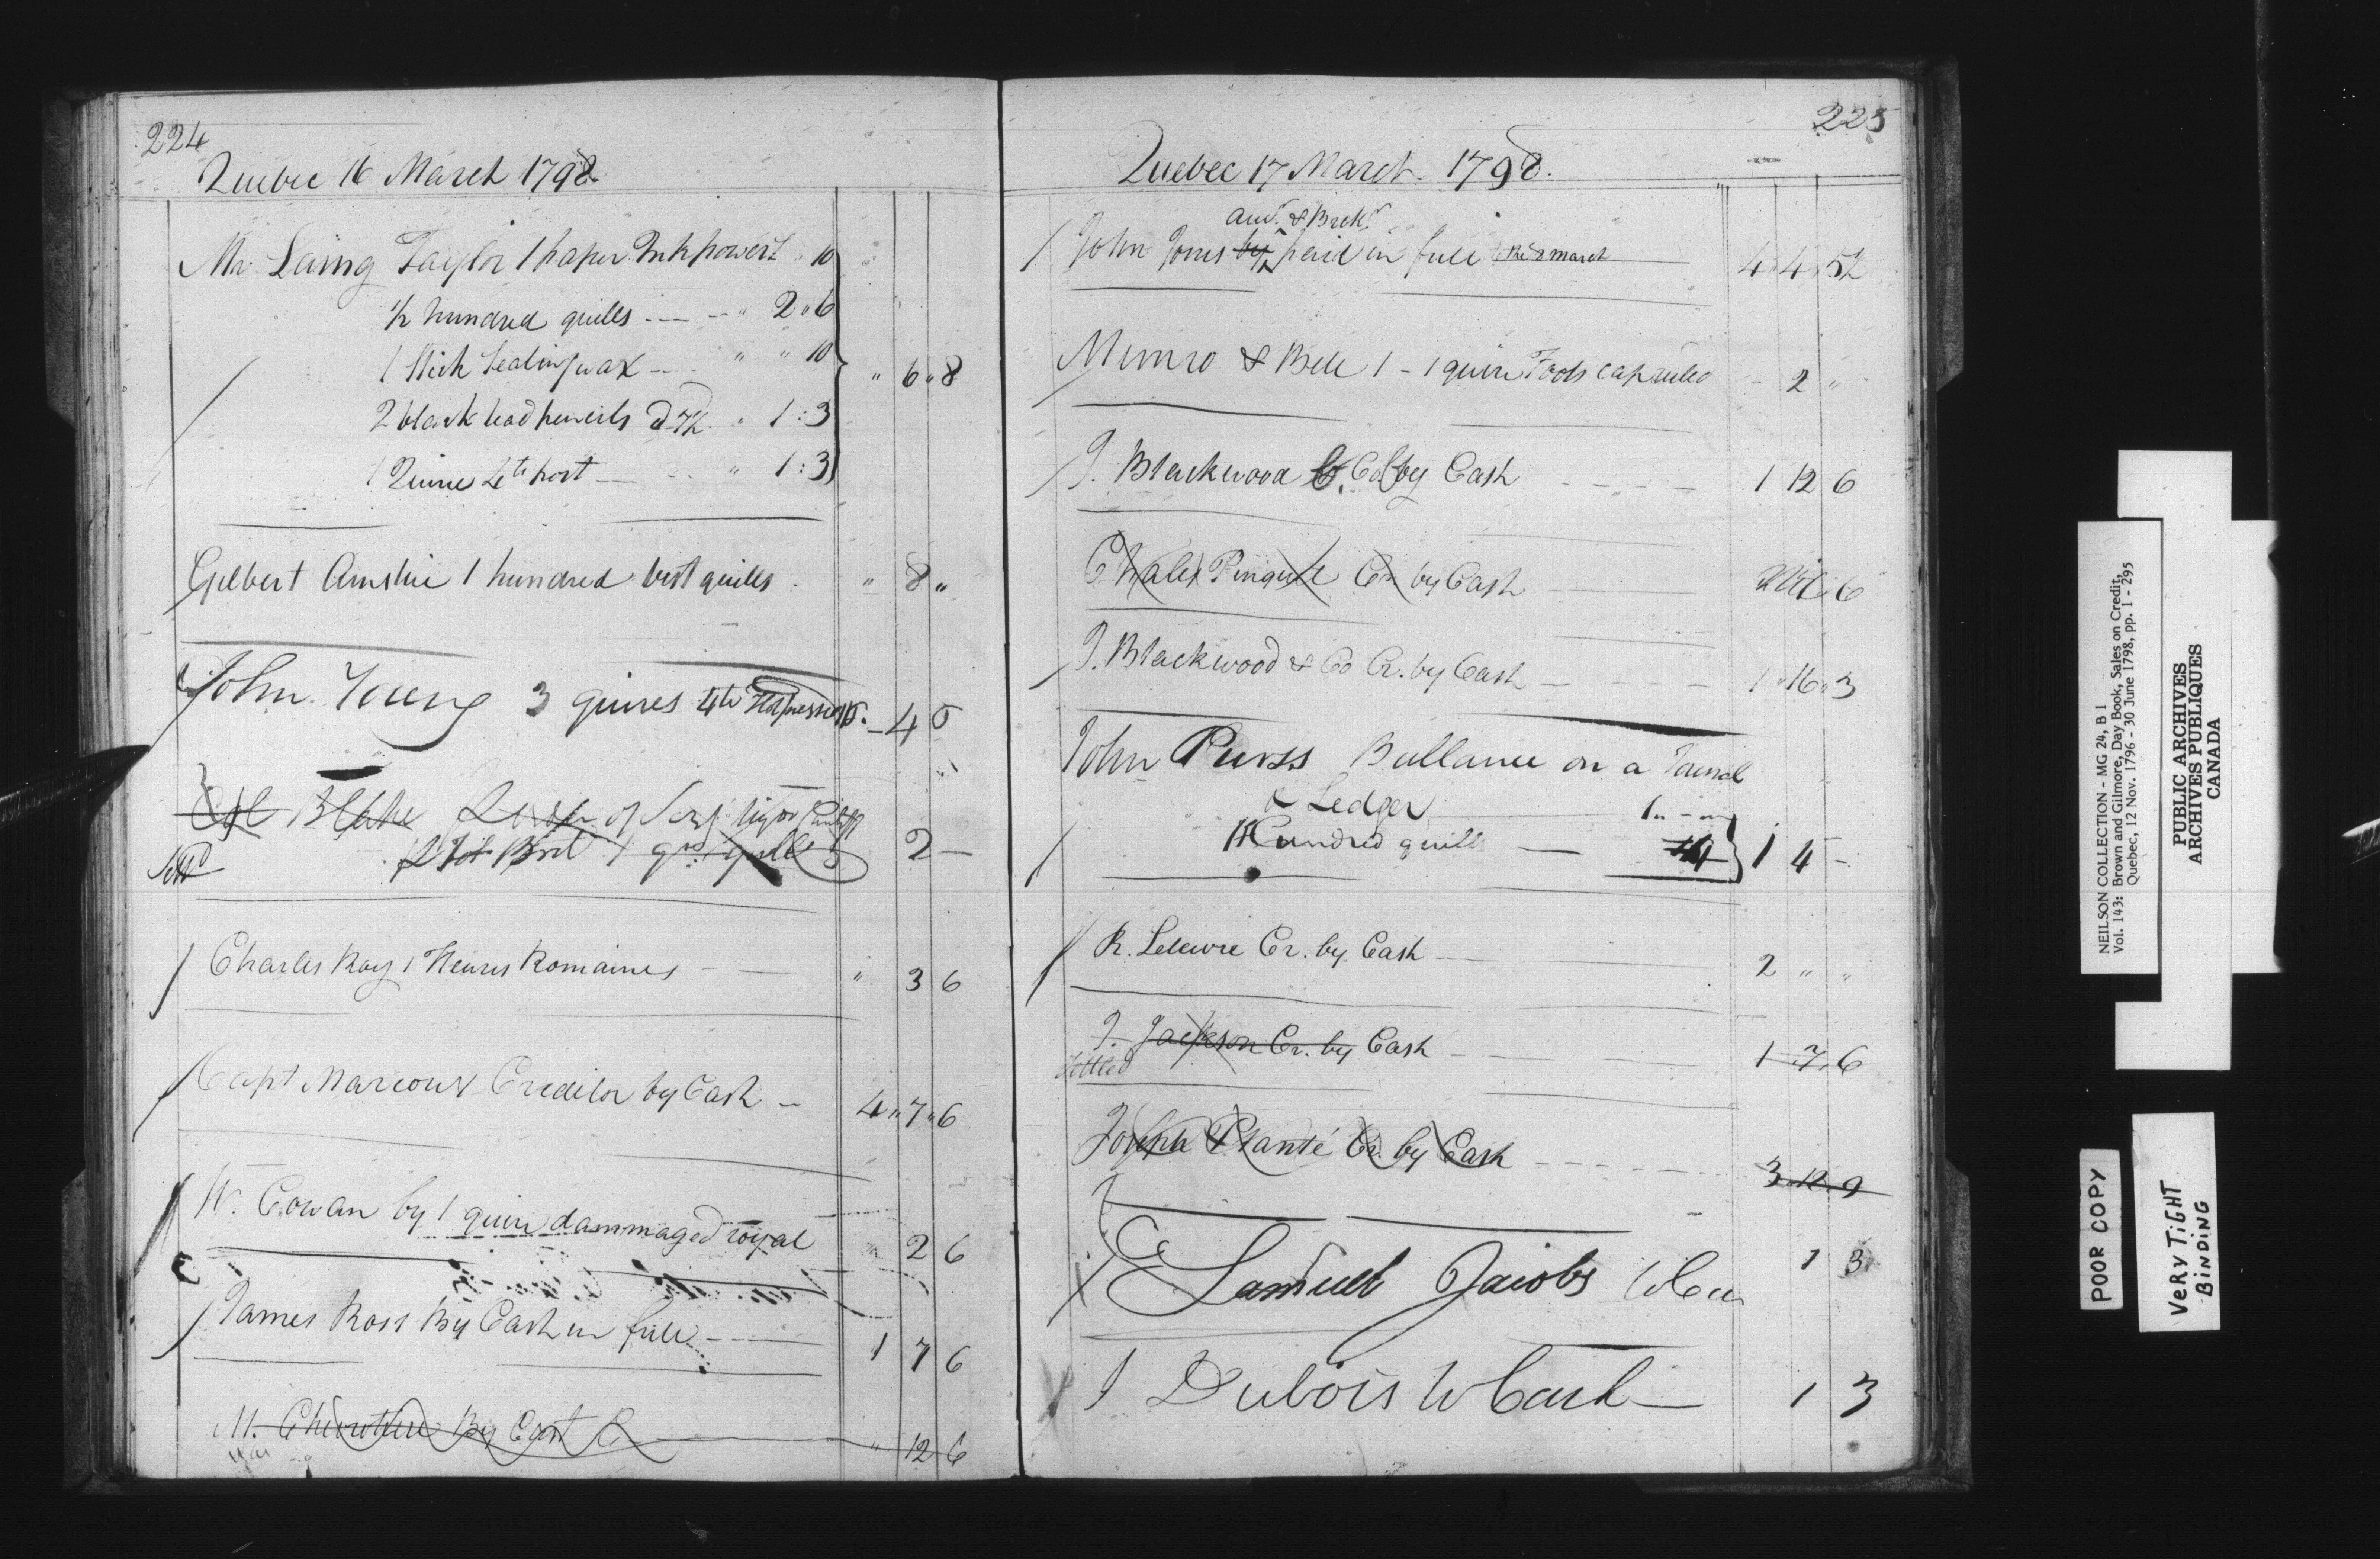 224
Quebec 16 March 1798.
Mr. Laing Taylor 1 paper Inkpowert " 10
1/2 hundred quills " 2 " 6
1 Stick Sealingwax " " 10
" 6 " 8
2 black lead pencils @ 7½ " 1 : 3
1 Quire 4to post " 1 : 3
Gilbert Ainslie 1 hundred best quills " 8 "
John Young 3 quires 4to Hotpressed - 4
Col Blake
2 —
Charles Roy 1 Heures Romaines " 3 6
Capt Marcoux Creditor by Cash 4 " 7 " 6
W. Cowan by 1 quire dammaged royal 2 6
James Ross By Cash in full 1 7 6
M. By " 12 6
225
Quebec 17 March. 1798.
& Brok.
John Jones paid in full March 4 4
Munro & Bell 1 - 1 quire Fools cap ruled - 2 "
J. Blackwood & Co by Cash 1 12 6
Cr by Cash 6
J. Blackwood & Co Cr. by Cash 1 " 16 " 3
John Purss Ballance on a
& Ledger 1
Hundred quill 1 4 -
R. Cr. by Cash 2 " "
J. Jackson Cr. by Cash 1 7 6
Settled
Joseph Planté Cr. by Cash 3
Samuel Jacobs 1 3
J Dubois Cash 1 3
NEILSON COLLECTION - MG 24, B 1
Vol. 143: Brown and Gilmore, Day Book, Sales on Credit,
Quebec, 12 Nov. 1796 - 30 June 1798, pp. 1 - 295
PUBLIC ARCHIVES
ARCHIVES PUBLIQUES
CANADA
POOR COPY
VERY TiGHT
BiNDiNG